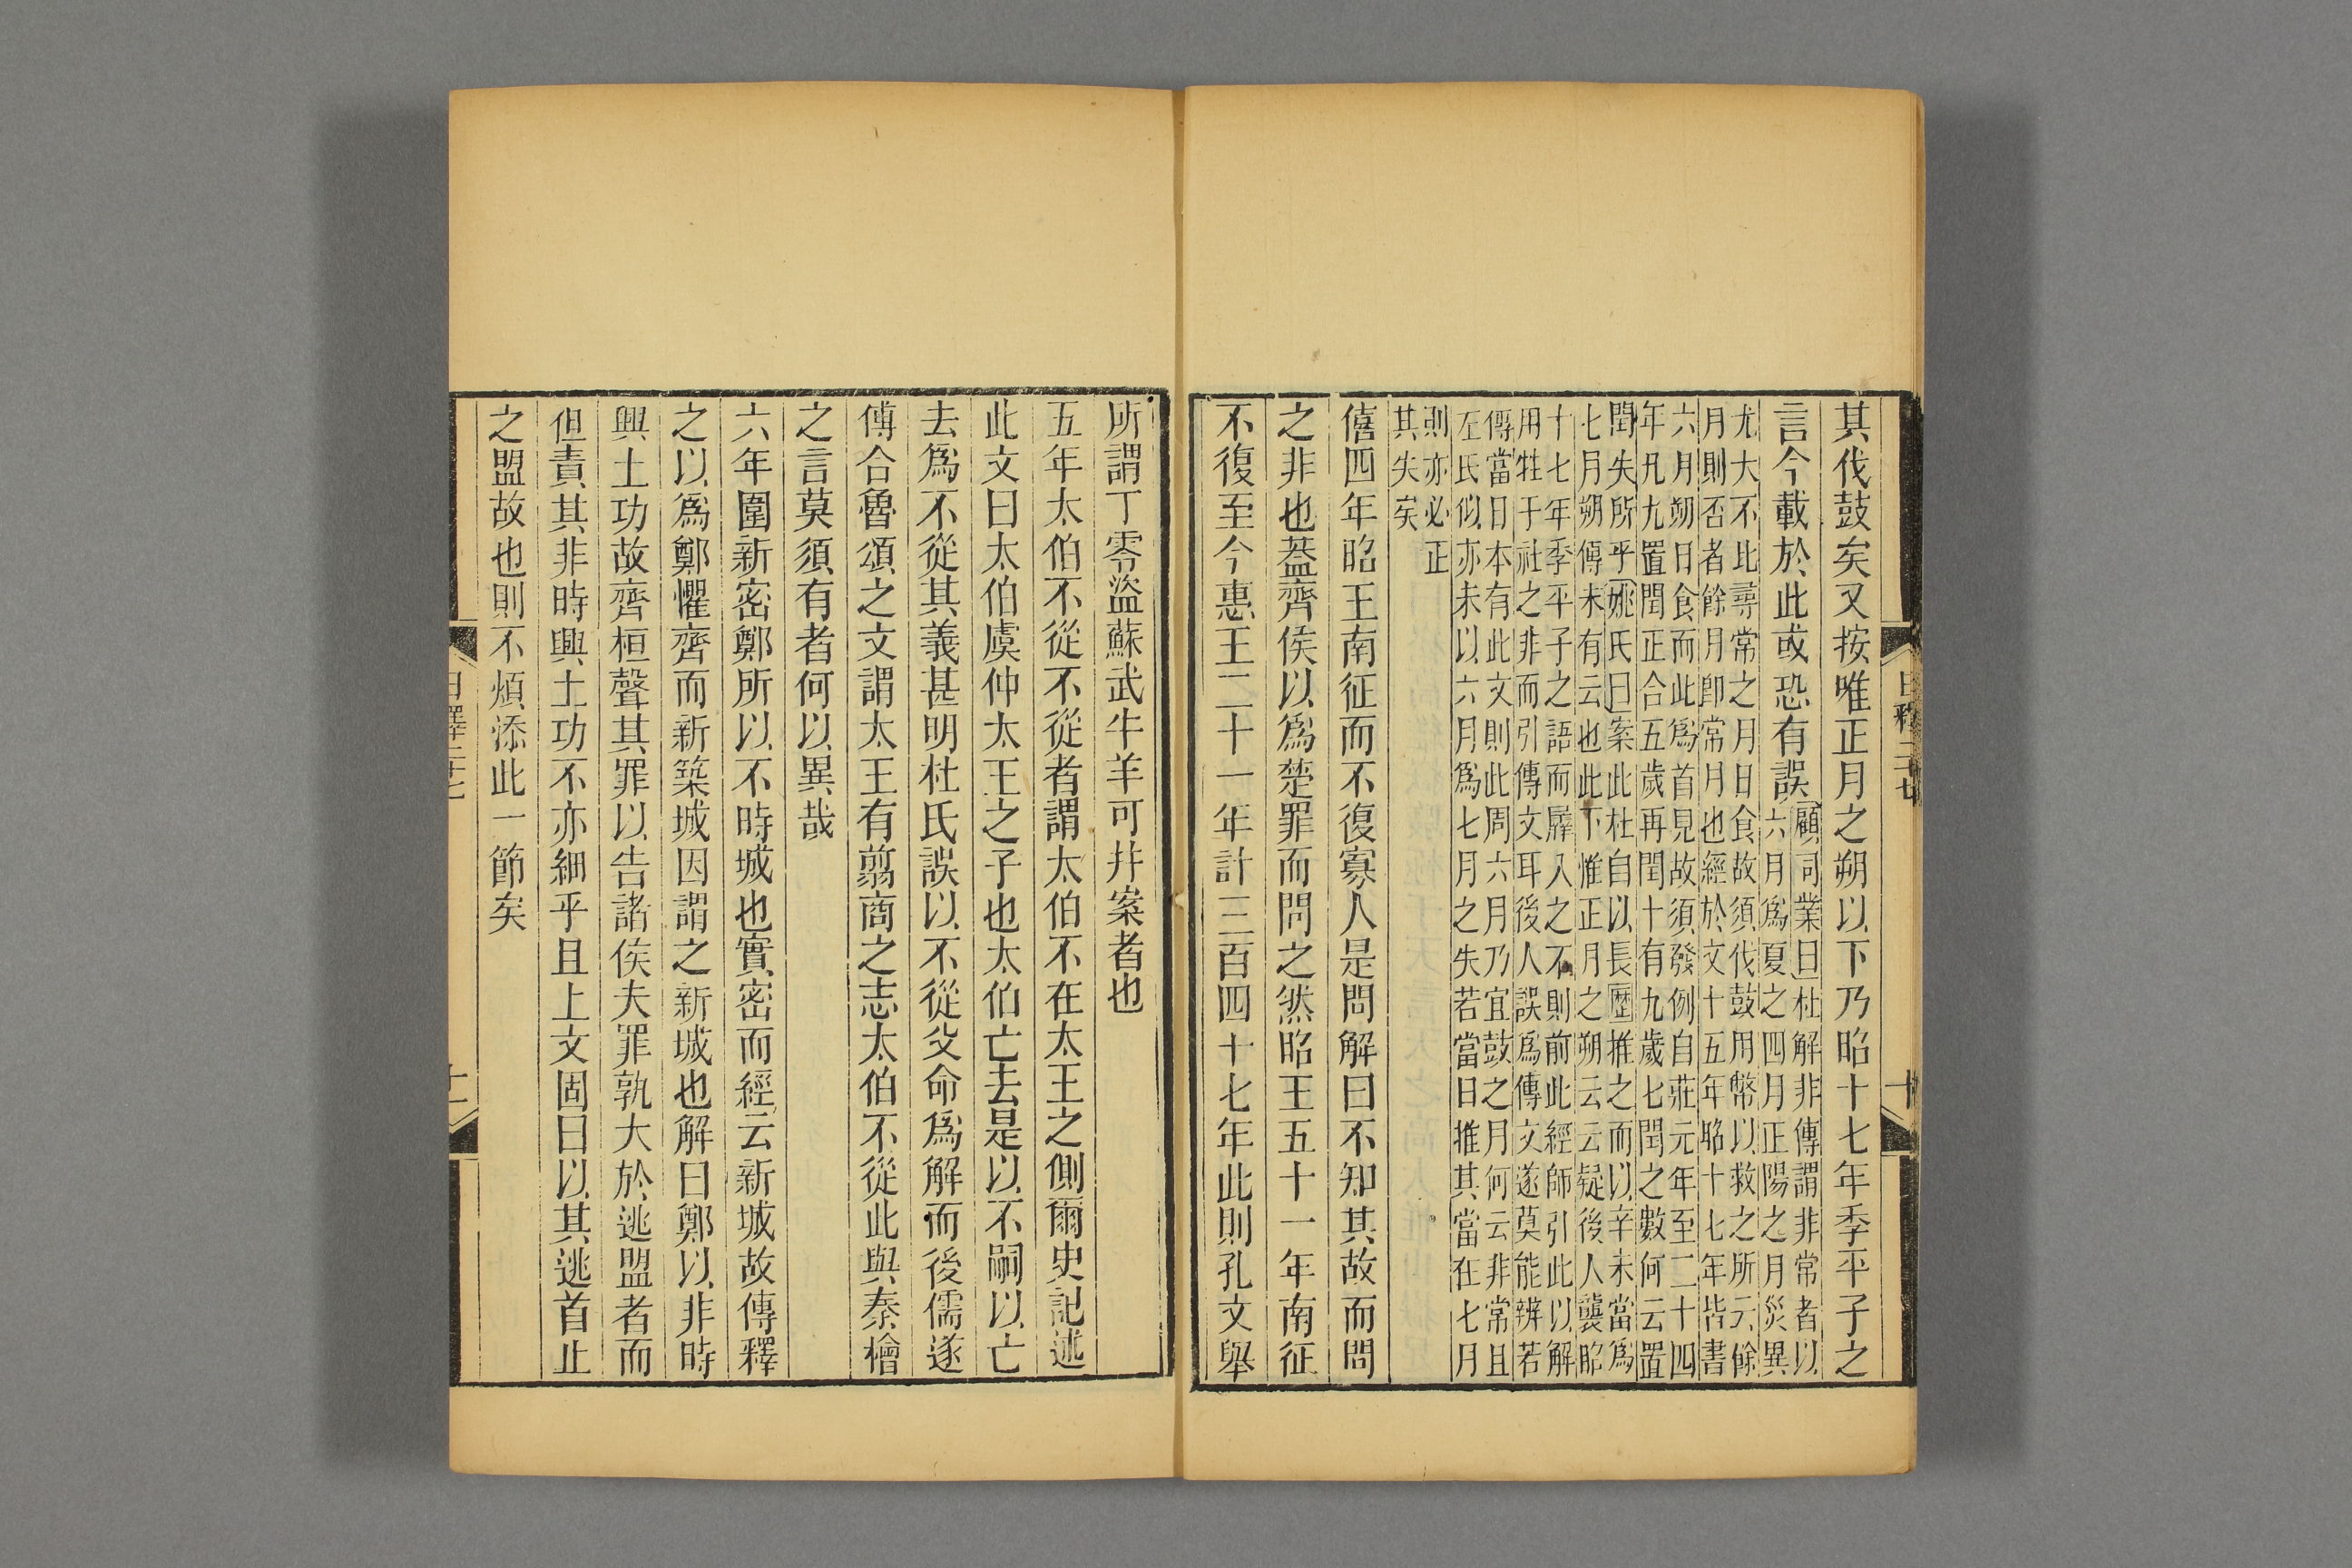 其伐鼓矣又按唯正月之朔以下乃昭十七年季平子之
言今載於此或恐有誤顧司業曰杜解非傳謂非常者以
六月爲夏之四月正陽之月災異
尤大不比尋常之月日食故須伐鼓用幣以救之所云餘
月則否者餘月卽常月也經於文十五年昭十七年皆書
六月朔日食而此爲首見故須發例自莊元年至二十四
年凡九置閏正合五歲再閏十有九歲七閏之數何云置
閏失所乎姚氏曰案此杜自以長歷推之而以辛未當爲
七月朔傳未有云也此下惟正月之朔云云疑後人襲昭
十七年季平子之語而羼入之不則前此經師引此以解
用牲于社之非而引傳文耳後人誤爲傳文遂莫能辨若
傳當日本有此文則此周六月乃宜鼓之月何云非常且
左氏似亦未以六月爲七月之失若當日推其當在七月
則亦必正
其失矣
僖四年昭王南征而不復寡人是問解曰不知其故而問
之非也葢齊侯以爲楚罪而問之然昭王五十一年南征
不復至今惠王二十一年計三百四十七年此則孔文舉
日釋二十七
十
所謂丁零盜蘇武牛羊可并案者也
五年太伯不從不從者謂太伯不在太王之側爾史記述
此文曰太伯虞仲太王之子也太伯亡去是以不嗣以亡
去爲不從其義甚明杜氏誤以不從父命爲解而後儒遂
傅合魯頌之文謂太王有翦商之志太伯不從此與秦檜
之言莫須有者何以異哉
六年圍新密鄭所以不時城也實密而經云新城故傳釋
之以爲鄭懼齊而新築城因謂之新城也解曰鄭以非時
興土功故齊桓聲其罪以告諸侯夫罪孰大於逃盟者而
但責其非時興土功不亦細乎且上文固曰以其逃首止
之盟故也則不煩添此一節矣
日釋二十七
十一